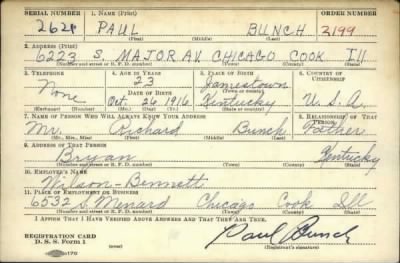 SERIAL NUMBER 1. NAME (Print) ORDER NUMBER
2621 PAUL BUNCH 2199
(First) (Middle) (Last)
2. ADDRESS (Print)
6223 S. MAJOR AV. CHICAGO COOK Ill
(Number and street or R. F. D. number) (Town) (County) (State)
3. TELEPHONE 4. AGE IN YEARS 5. PLACE OF BIRTH 6. COUNTRY OF CITIZENSHIP
None 23 Jamestown
DATE OF BIRTH (Town or county)
Oct. 26 1916 Kentucky U.S.A.
(Exchange) (Number) (Mo.) (Day) (Yr.) (State or country)
7. NAME OF PERSON WHO WILL ALWAYS KNOW YOUR ADDRESS 8. RELATIONSHIP OF THAT PERSON
Mr. Richard Bunch Father
(Mr., Mrs., Miss) (First) (Middle) (Last)
9. ADDRESS OF THAT PERSON
Bryan Kentucky
(Number and street or R. F. D. number) (Town) (County) (State)
10. EMPLOYER'S NAME
Wilson-Bennett
11. PLACE OF EMPLOYMENT OR BUSINESS
6532 S. Menard Chicago Cook Ill
(Number and street or R. F. D. number) (Town) (County) (State)
I AFFIRM THAT I HAVE VERIFIED ABOVE ANSWERS AND THAT THEY ARE TRUE.
REGISTRATION CARD
D. S. S. Form 1 Paul Bunch
(Registrant's signature)